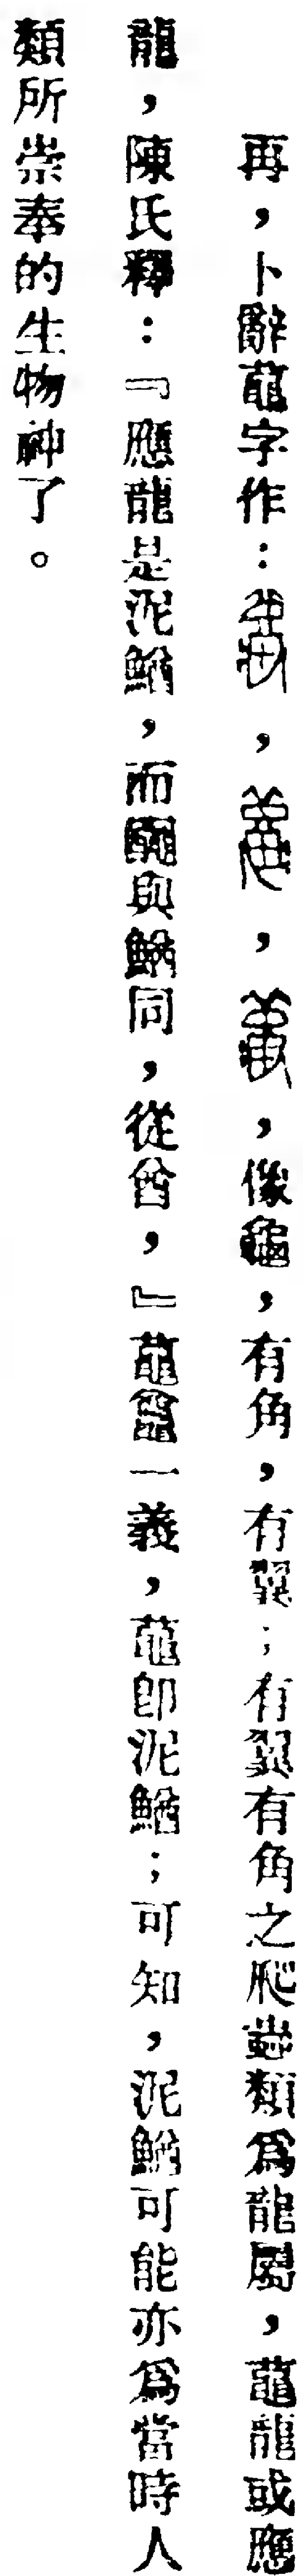 再，卜辭字作：，，，像龜，有角，有翼；有翼有角之爬蟲類爲龍屬，龍或應
龍，陳氏釋：『應龍是泥鰌，而與鰌同，從酋，』一義，即泥鰌；可知，泥鰌可能亦爲當時人
類所崇奉的生物神了。